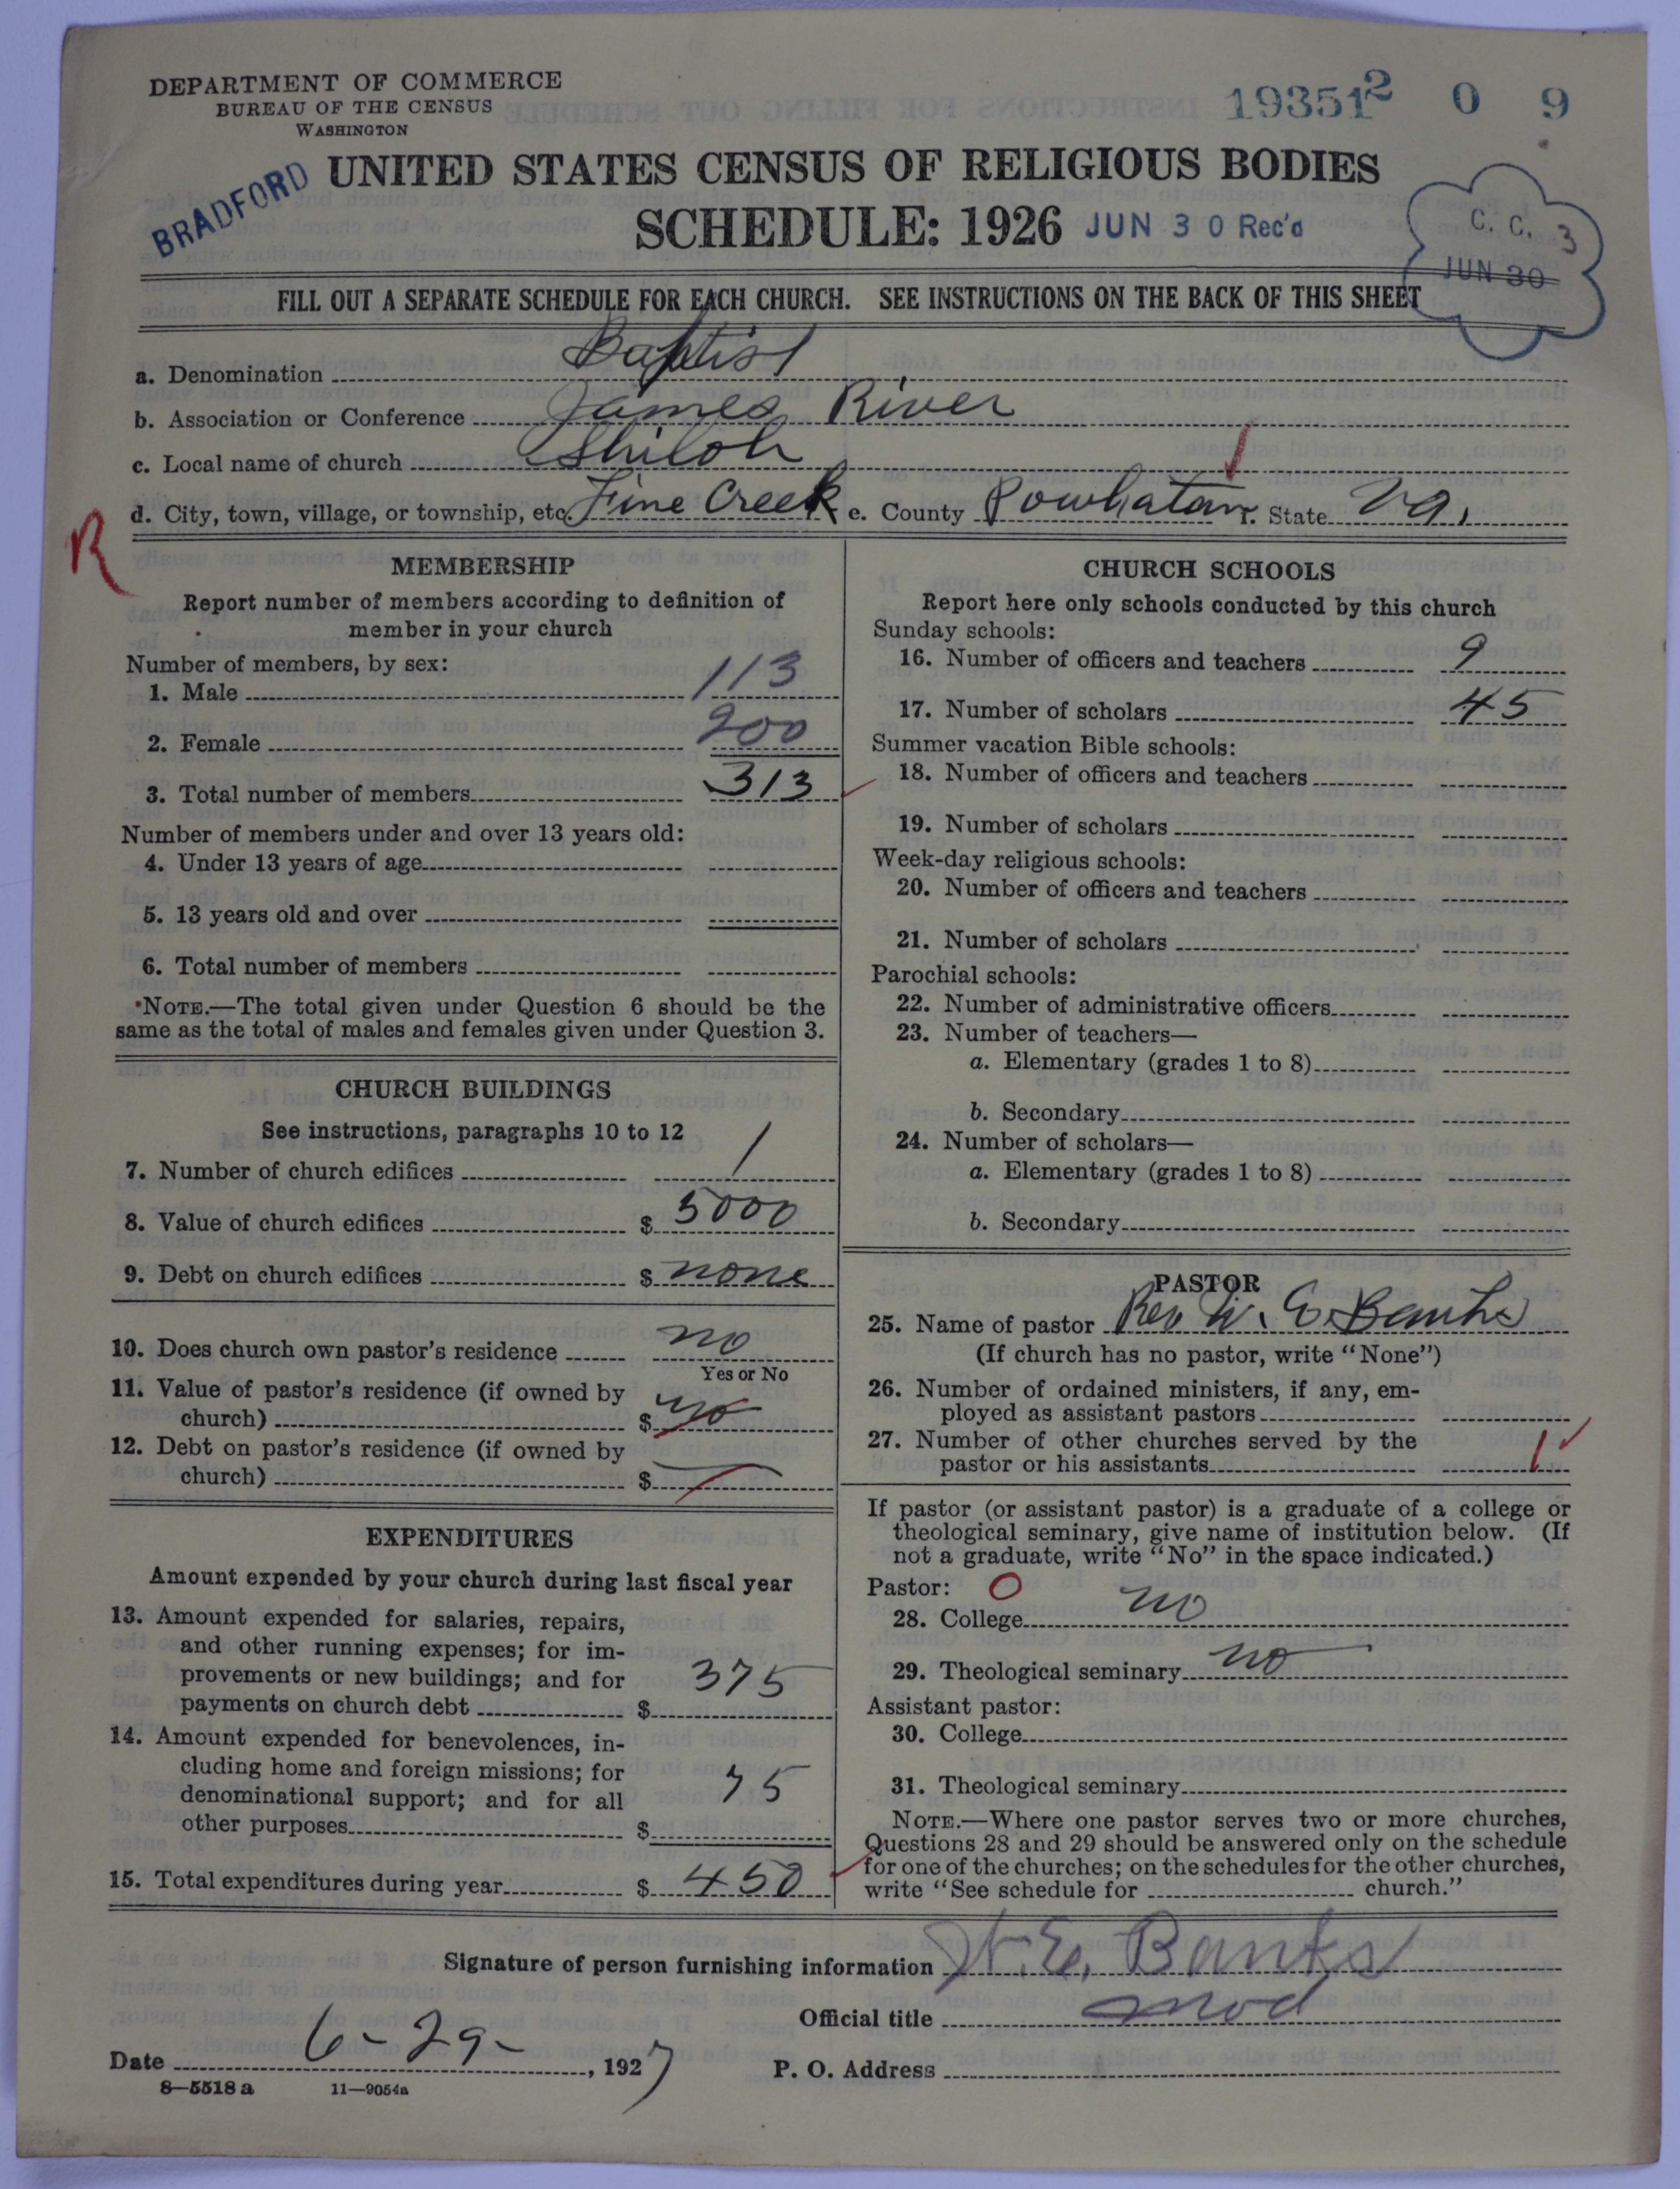 DEPARTMENT OF COMMERCE
BUREAU OF THE CENSUS
WASHINGTON
19351 2 0 9
BRADFORD
UNITED STATES CENSUS OF RELIGIOUS BODIES
SCHEDULE: 1926 JUN 30 Rec'd
C. C. 3
JUN 30
FILL OUT A SEPARATE SCHEDULE FOR EACH CHURCH. SEE INSTRUCTIONS ON THE BACK OF THIS SHEET
a. Denomination Baptist
b. Association or Conference James River
c. Local name of church Shiloh
d. City, town, village, or township, etc. Fine Creek e. County Powhatan f. State Va.
R
MEMBERSHIP
Report number of members according to definition of
member in your church
Number of members, by sex:
1. Male 113
2. Female 200
3. Total number of members 313
Number of members under and over 13 years old:
4. Under 13 years of age
5. 13 years old and over
6. Total number of members
NOTE.—The total given under Question 6 should be the
same as the total of males and females given under Question 3.
CHURCH BUILDINGS
See instructions, paragraphs 10 to 12
7. Number of church edifices 1
8. Value of church edifices $ 5000
9. Debt on church edifices $ none
10. Does church own pastor's residence no
Yes or No
11. Value of pastor's residence (if owned by
church) $ no
12. Debt on pastor's residence (if owned by
church) $
EXPENDITURES
Amount expended by your church during last fiscal year
13. Amount expended for salaries, repairs,
and other running expenses; for im-
provements or new buildings; and for
payments on church debt $ 375
14. Amount expended for benevolences, in-
cluding home and foreign missions; for
denominational support; and for all
other purposes $ 75
15. Total expenditures during year $ 450
CHURCH SCHOOLS
Report here only schools conducted by this church
Sunday schools:
16. Number of officers and teachers 9
17. Number of scholars 45
Summer vacation Bible schools:
18. Number of officers and teachers
19. Number of scholars
Week-day religious schools:
20. Number of officers and teachers
21. Number of scholars
Parochial schools:
22. Number of administrative officers
23. Number of teachers—
a. Elementary (grades 1 to 8)
b. Secondary
24. Number of scholars—
a. Elementary (grades 1 to 8)
b. Secondary
PASTOR
25. Name of pastor Rev W. E. Banks
(If church has no pastor, write "None")
26. Number of ordained ministers, if any, em-
ployed as assistant pastors
27. Number of other churches served by the
pastor or his assistants 1
If pastor (or assistant pastor) is a graduate of a college or
theological seminary, give name of institution below. (If
not a graduate, write "No" in the space indicated.)
Pastor: O
28. College no
29. Theological seminary no
Assistant pastor:
30. College
31. Theological seminary
NOTE.—Where one pastor serves two or more churches,
Questions 28 and 29 should be answered only on the schedule
for one of the churches; on the schedules for the other churches,
write "See schedule for church."
Signature of person furnishing information W. E. Banks
Official title Mod
Date 6-29-, 1927 P. O. Address
8—5518 a 11—9054a